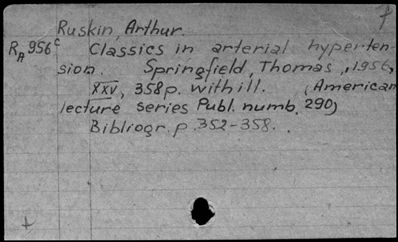 Ruskin, Arthur.
RA 956c Classics in arterial hyperten-
sion. Springfield, Thomas, 1956,
XXV, 358p. with ill. (American
lecture series Publ. numb. 290)
Bibliogr. p. 352-358.